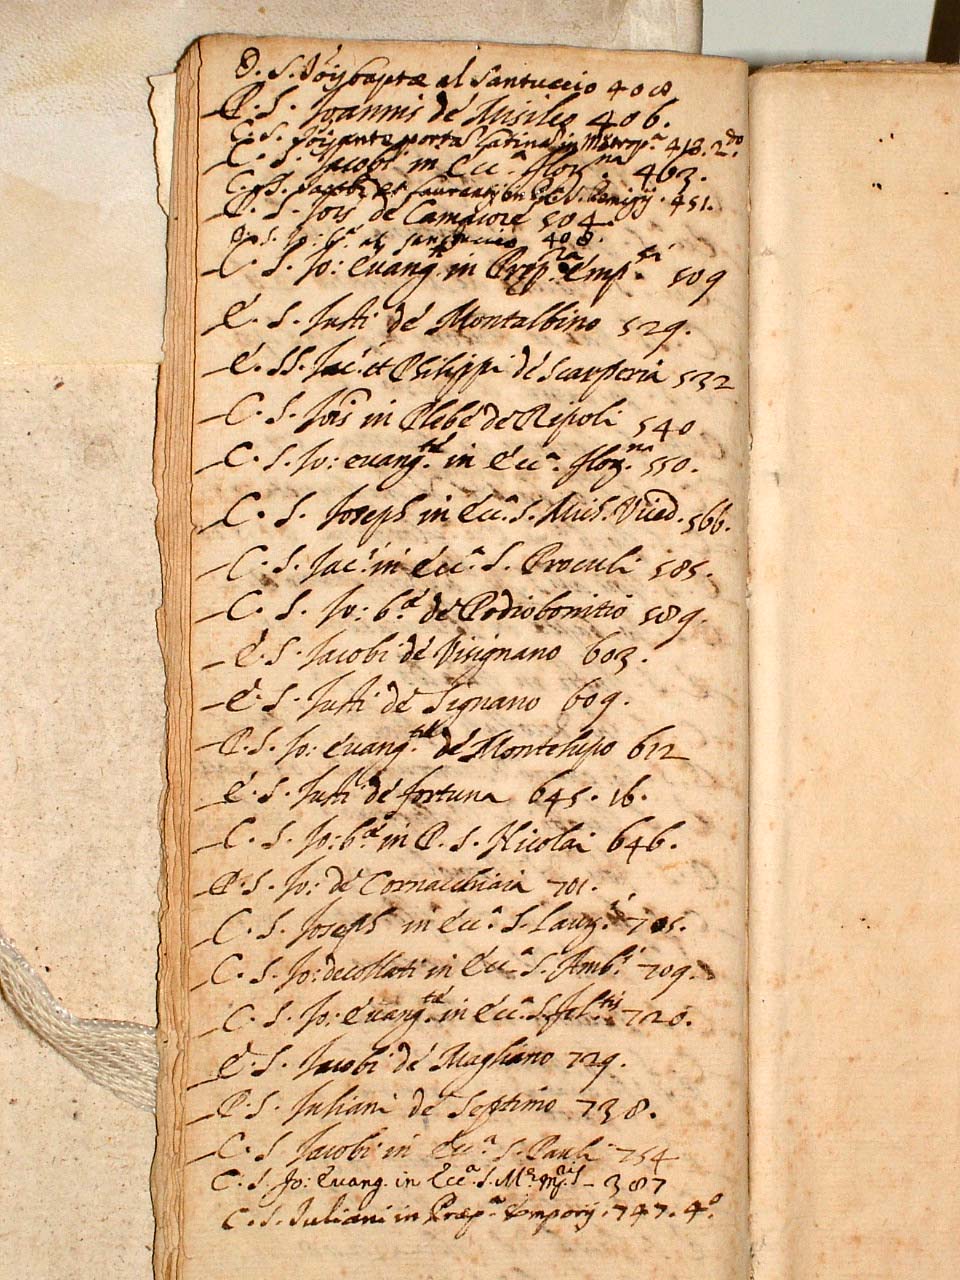 O. S. Jöijbaptæ al Santuccio 408
P. S. Joannis de Misileo 406.
C. S. Jöis ante portā Latinā in metrop.ª 418. 2.do
C. S. Jacobi in Ecc.ª flor.na 463.
C. SS. Jacobi et Laurentij in 451.
C. S. Jois de Camaiore 504.
O. S. Jo: b.ª al Santuccio 408.
C. S. Jo: Evang.tæ in Prep.ra Emp.ri 509
E. S. Justi de Montalbino 529.
E. SS. Jac.i et Philippi de Scarperia 532
C. S. Jois in Plebe de Ripoli 540
C. S. Jo: evang.tæ in Ecc.ª flor.na 550.
C. S. Joseph in Ecc.ª S. Mich. Viced. 566.
C. S. Jac.i in Ecc.ª S. Proculi 585.
C. S. Jo: b.æ de Podiobonitio 589.
E. S. Jacobi de Visignano 603.
E. S. Justi de Signano 609.
P. S. Jo: Evang.tæ de Montelupo 612
E. S. Justi de fortuna 645. 16.
C. S. Jo: b.æ in P. S. Nicolai 646.
P. S. Jo: de Cornacchiaia 701.
C. S. Joseph in Ecc.ª S. Laur.i 705.
C. S. Jo: decollati in Ecc.ª S. Amb.i 709.
C. S. Jo: Evang.tæ in Ecc.ª 720.
E. S. Jacobi de Magliano 729.
P. S. Juliani de Septimo 738.
C. S. Jacobi in Ecc.ª S. Pauli 754
C. S. Jo: Evang. in Ecc.ª S. M.ª 387
C. S. Juliani in Præp.ª Emporij. 747. 4.º